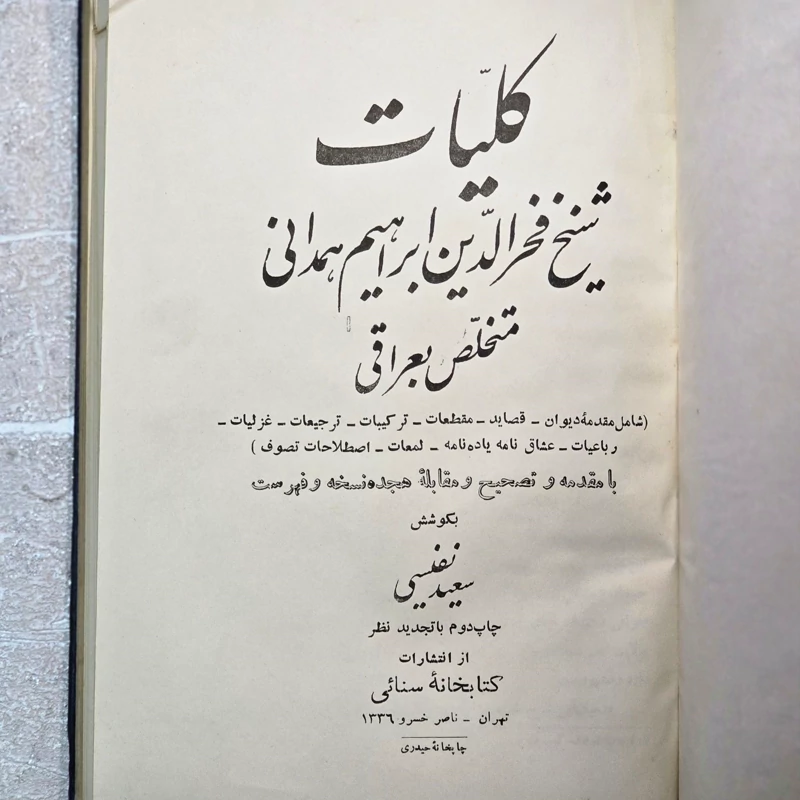 کلیّات
شیخ فخرالدّین ابراهیم همدانی
متخلّص بعراقی
(شامل مقدمهٔ دیوان - قصاید - مقطعات - ترکیبات - ترجیعات - غزلیات -
رباعیات - عشاق نامه یاده‌نامه - لمعات - اصطلاحات تصوف)
با مقدمه و تصحیح و مقابلهٔ هجده نسخه و فهرست
بکوشش
سعید نفیسی
چاپ دوم با تجدید نظر
از انتشارات
کتابخانهٔ سنائی
تهران - ناصر خسرو ۱۳۳۶
چاپخانهٔ حیدری